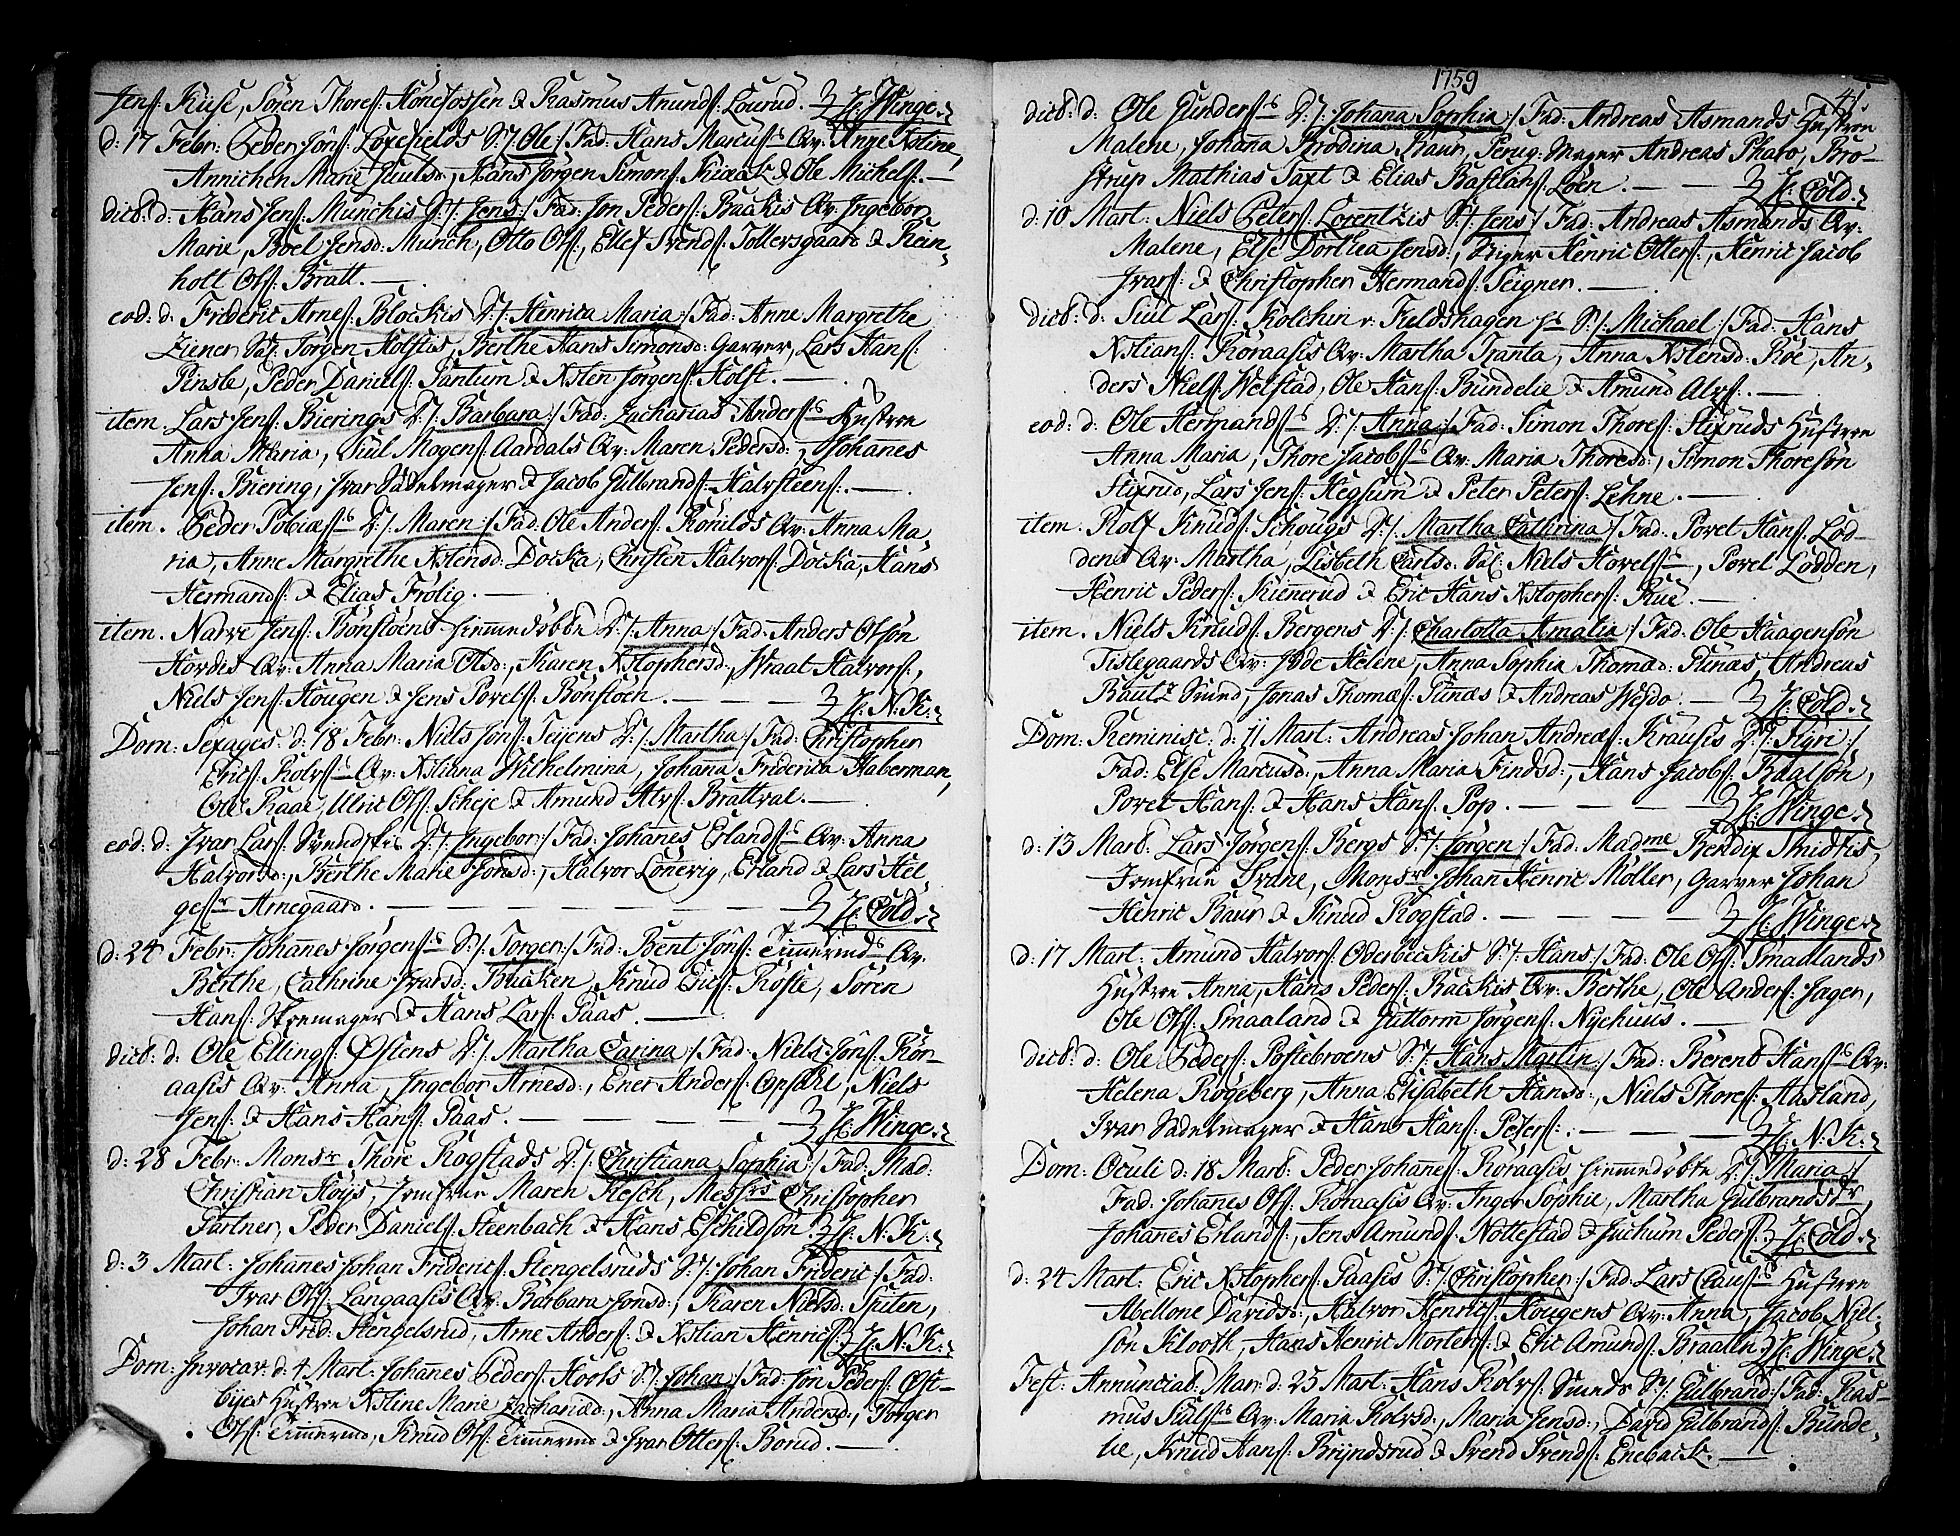 Jens: Kiise, Sören Thores: Hönefossen & Rasmus Amunds: Lourud. H: Winge.
d: 17 Febr: Peder Jöns: Loxefields S:/: Ole :/ Fad: Hans Marcus:s Qv: Ange Xstine,
Annichen Marie Juulsd:, Hans Jörgen Simons: & Ole Michels:
dieb: d: Hans Jens: Munchis S:/: Jens :/ Fad: Jon Peders: Backis Qv: Ingebor
Marie, Boel Jensd: Munch, Otto Ols:, Ellef Svends: Tollersgaard & Rein-
holt Ols: Bratt.
eod: d: Frideric Arnes: Blockis D:/: Henrica Maria :/ Fad: Anne Margrethe
Ziener Sal: Jörgen Holstis, Berthe Hans Simonsd: Garver, Lars Hans:
Pinsle, Peder Daniels: Tantum & Xsten Jörgens: Holst.
item. Lars Jens: Bierings D:/: Barbara :/ Fad: Zacharias Anders:s Hustroe
Anna Maria, Siul Mogens: Aardals Qv: Maren Pedersd:, Johanes
Jens: Biering, Ivar Sadelmager & Jacob Gulbrands: Halvsteens:
item. Peder Tobiæs:s D:/: Maren :/ Fad: Ole Anders: Rönilds Qv: Anna Ma-
ria, Anne Margrethe Xstensd: Docka, Christen Halvors: Docka, Hans
Hermands: & Elias Frölig.
item. Narve Jens: Bönstöens hiemmedöbte D:/: Anna :/ Fad: Anders Olsön
Hovdes Qv: Anna Maria Olsd:, Karen Xstophersd:, Wraal Halvors:,
Niels Jens: Hougen & Jens Povels: Bönstöen. H: N. K:
Dom: Sexages: d: 18 Febr: Niels Jöns: Teijens D:/: Martha :/ Fad: Christopher
Erics: Rolvs:s Qv: Xstiana Wilhelmina, Johana Friderica Haberman,
Ole Baae, Ulric Ols: Scheje & Amund Alvs: Brattval.
eod: d: Ivar Lars: D:/: Ingebor :/ Fad: Johanes Erlands:s Qv: Anna
Halvorsd:, Berthe Marie Jonsd:, Halvor Lönevig, Erland & Lars Hel-
ges:r Arnegaard. H: Cold.
d: 24 Febr: Johannes Jörgens:s S:/: Torger :/ Fad: Bent Jöns: Qv.
Berthe, Cathrine Ivarsd: Buaken, Knud Erics: Roste, Sören
Hans: & Hans Lars: Paas.
dieb: d: Ole Ellings: Østens D:/: Martha Carina :/ Fad: Niels Jöns: Kor-
aasis Qv: Anna, Ingebor Arnesd:, Ener Anders: Opsahl, Niels
Jens: & Hans Hans: Paas. H: Winge.
d: 28 Febr: Monsr Thore Rogstads D:/: Christiana Sophia :/ Fad: Mad:
Christian Hoijs, Jomfrue Maren Resch, Messrs Christopher
Gartner, Peder Daniels: Steenbach & Hans Eschildsön. H: N: K:
d: 3 Mart: Johanes Johan Friderics: Stengelsruds S:/: Johan Frideric :/ Fad:
Ivar Ols: Langaasis Qv: Barbara Jonsd:, Karen Nielsd: Spiten,
Johan Frid: Stengelsrud, Arne Anders: & Xstian Henrics: H: N: K:
Dom: Invocav: d: 4 Mart: Johanes Peders: Hools S:/: Johan :/ Fad: Jon Peders: Øst-
byes Hustroe Xstine Marie Zachariæd:, Anna Maria Andersd:, Torger
Ols: Timermd, Knud Ols: Timermd & Ivar Otters: Borud.
1759
41.
dieb: d: Ole Gunders:s D:/: Johana Sophia :/ Fad: Andreas Asmands Hustroe
Malene, Johana Brodina Baur, Peruq: Mager Andreas Pharo, Bro-
strup Mathias Taxt & Elias Bastians: Loen. H: Cold.
d: 10 Mart: Niels Peters: Lorentzis S:/: Jens :/ Fad: Andreas Asmands Qv:
Malene, Else Dorthea Jensd:, Henric Otters:, Henric Jacob
Ivars: & Christopher Hermands: Seigner.
dieb: d: Siul Lars: Kolchin v: Fieldshagen S:/: Michael :/ Fad: Hans
Xstians: Koraasis Qv: Martha Tranta, Anna Xstensd: Roe, An-
ders Niels: Welstad, Ole Hans: Bundelie & Amund Alvs:
eod: d: Ole Hermands:s D:/: Anna :/ Fad: Simon Thores: Stixruds Hustroe
Anna Maria, Thore Jacobs:s Qv: Maria Thoresd:, Simon Thoresön
Stixrud, Lars Jens: Hegsum & Peter Peters: Lehne.
item. Rolf Knuds: Schougs D:/: Martha Cathrina :/ Fad: Povel Hans: Lod-
dens Qv: Martha, Lisbeth Carlsd: Sal: Niels Hovels:s, Povel Lodden,
Henric Peders: Kienerud & Eric Hans Xstophers: Rue.
item. Niels Knuds: Bergens D:/: Charlotta Amalia :/ Fad: Ole Haagensön
Tislegaards Qv: Jide Helene, Anna Sophia Thomæd: Funæs, Andreas
Bautz Smed, Jonas Thomæs: Funæs & Andreas Wesdo. H: Cold.
Dom: Reminisc: d: 11 Mart: Andreas Johan Andreæs: Krausis D:/: Sigri :/
Fad: Else Marcusd:, Anna Maria Findsd:, Hans Jacobs: Baalsön,
Povel Hans: & Hans Hans: Pop. H: Winge.
d: 13 Mart: Lars Jörgens: Bergs S:/: Jörgen :/ Fad: Madme Bendix Smidtis,
Jomfrue Svane, Monsr Johan Henric Möller, Garver Johan
Henric Baur & Knud Rogstad. H: Winge.
d: 17 Mart: Amund Halvors: Oderbeckis S:/: Hans :/ Fad: Ole Ols: Smadlands
Hustroe Anna, Hans Peders: Backis Qv: Berthe, Ole Anders: Jager,
Ole Ols: Smaaland & Guttorm Jörgens: Nyehuus.
dieb: d: Ole Peders: Postebroens S:/: Hans Martin :/ Fad: Berent Hans:s Qv:
Helena Rogeberg, Anna Elisabeth Hansd:, Niels Thores: Aasland,
Ivar Sadelmager & Hans Hans: Peters: H: N: K:
Dom: Oculi d: 18 Mart: Peder Johanes: Koraasis hiemmedöbte D:/: Maria :/
Fad: Johanes Ols: Koraasis Qv: Inger Sophie, Martha Gulbrandsdr,
Johanes Erlands:, Jens Amunds: Nottestad & Juchum Peders: H: Cold.
d: 24 Mart: Eric Xstophers: Paasis S:/: Christopher :/ Fad: Lars Claus:s Hustroe
Abellone Davidsd:, Halvor Henrics: Hougens Qv: Anna, Jacob Niel-
sön Klooth, Hans Henric Mortens: & Eric Amunds: Braaten. H: Winge.
Fest: Annunciat: Mar: d: 25 Mart: Hans Rolvs: Smeds S:/: Gulbrand :/ Fad: Ras-
mus Juls:s Qv: Marie Rolvsd:, Maria Jensd:, David Gulbrands: Bunde-
lie, Knud Hans: Bryndsrud & Svend Svends: Eneback.